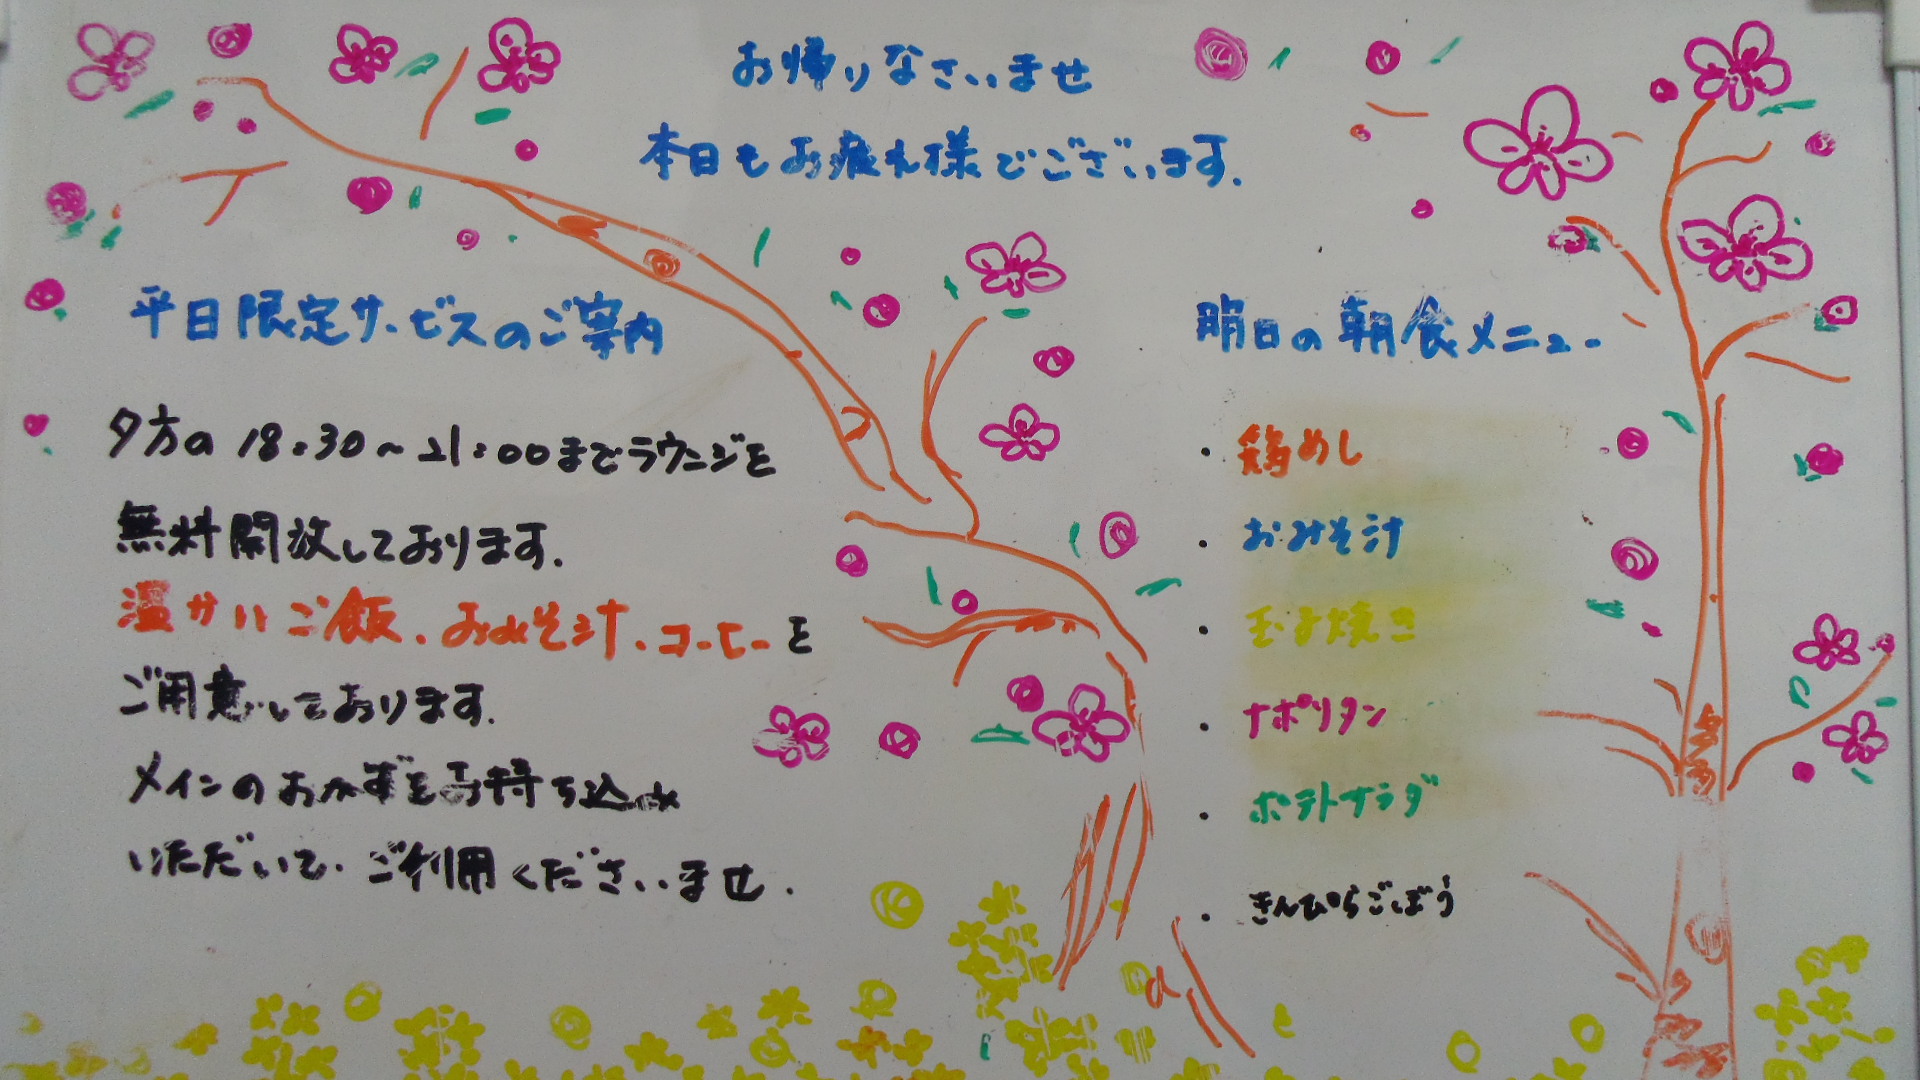 お帰りなさいませ
本日もお疲れ様でございます.
平日限定サービスのご案内
夕方の 18:30～21:00までラウンジを
無料開放しております.
温かいご飯、おみそ汁、コーヒーを
ご用意しております.
メインのおかずをお持ち込み
いただいて、ご利用くださいませ.
明日の朝食メニュー
・鶏めし
・おみそ汁
・玉子焼き
・ナポリタン
・ポテトサラダ
・きんぴらごぼう